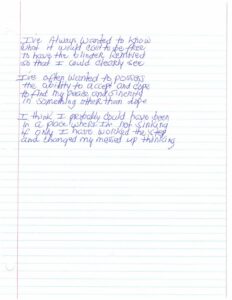 I've Always wanted to know
what it would cost to be free
to have the blinders removed
so that I could clearly see
I've often wanted to possess
the ability to accept and cope
to find my peace and sincerity
in something other than dope
I think I probably could have been
in a place where I'm not sinking
if only I have worked the step
and changed my messed up thinking